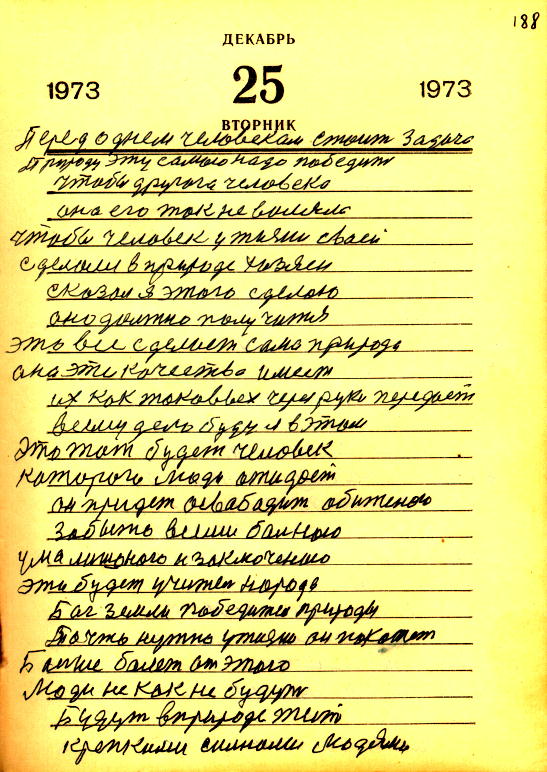 188
ДЕКАБРЬ
1973 25 1973
ВТОРНИК
Перед однем человекам стоит задача
Природу эту самою надо победит
чтобы другога человека
она его так не валяла
Чтобы человек у жизни своей
сделали в природе хазяен
сказал я этого сделаю
оно должно получится
это все сделает сама природа
она эти качества имеет
их как таковых через руки передает
всему дело буду я в этом
Это тот будет человек
которого люди ожидает
он придет освабадит обиженою
забыть всеми балною
ума лишоного и заключеною
Это будет учител народа
Бог земли победител природы
То что нужно у жизни он покажет
Болше болет от этого
Люди не как не будут
Будут в природе жит
крепкими силными людями